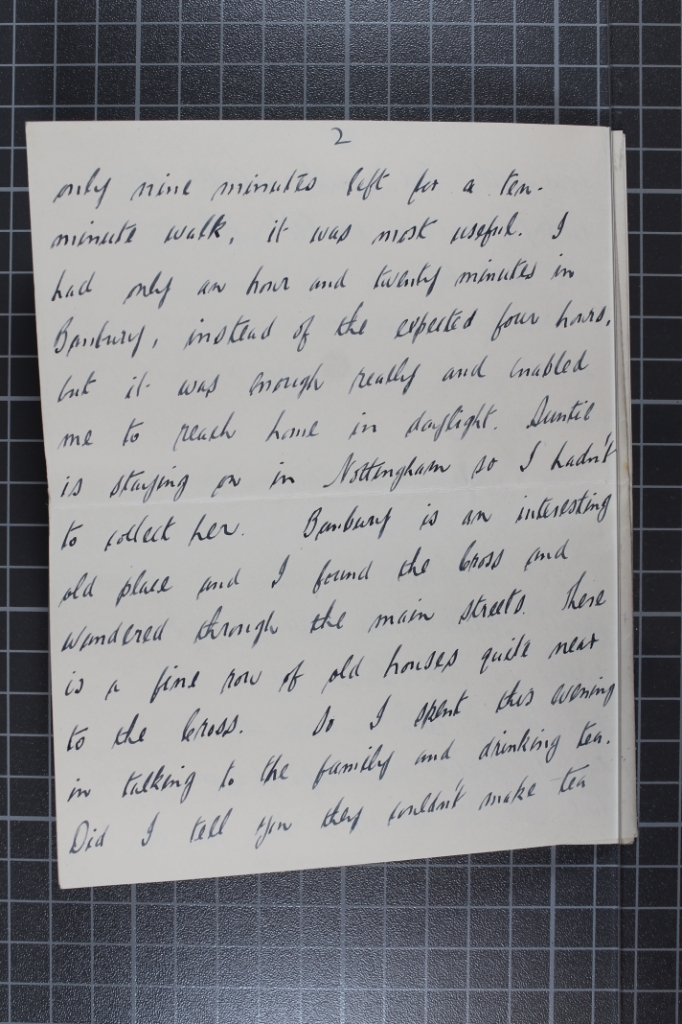 2
only nine minutes left for a ten-
minute walk, it was most useful. I
had only an hour and twenty minutes in
Banbury, instead of the expected four hours,
but it was enough really and enabled
me to reach home in daylight. Auntie
is staying on in Nottingham so I hadn't
to collect her. Banbury is an interesting
old place and I found the Cross and
wandered through the main streets. There
is a fine row of old houses quite near
to the Cross. So I spent this evening
in talking to the family and drinking tea.
Did I tell you they couldn't make tea